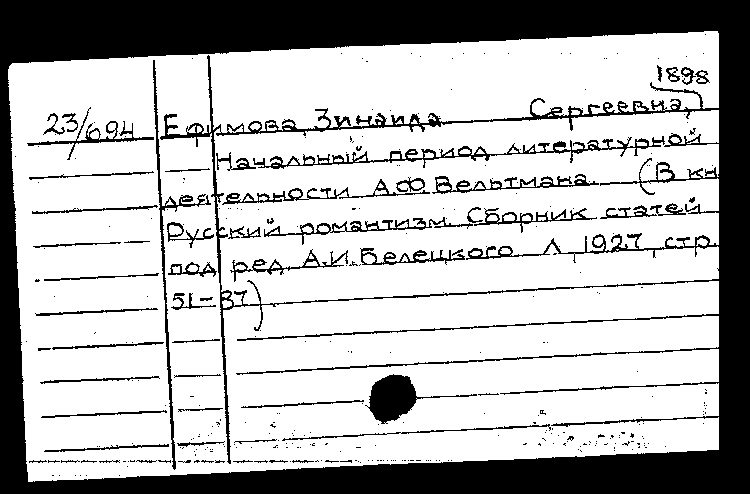 1898
23/694 Ефимова, Зинаида Сергеевна,
Начальный период литературной
деятельности А.Ф. Вельтмана. (В кн
Русский романтизм. Сборник статей
под ред. А.И. Белецкого Л, 1927, стр.
51-87)